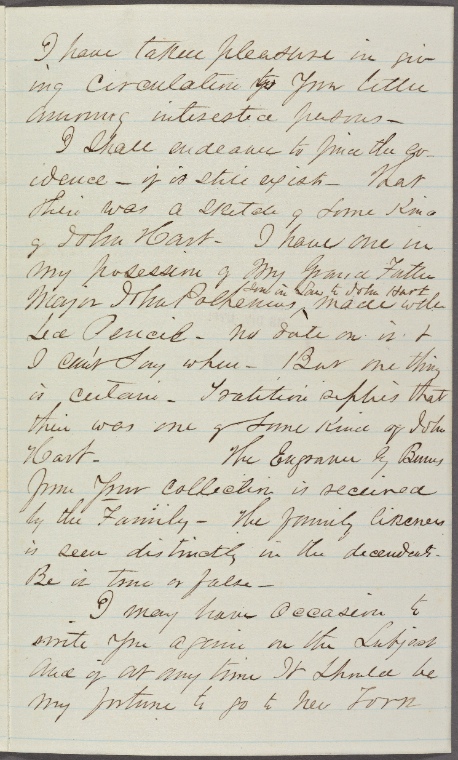 I have taken pleasure in giv
ing circulation to your letter
among interested persons –
I shall endeavor to find the evi
idence – if it still exist – that
their was a sketch of some kind
of John Hart – I have one in
my posession of My Grand Father
Son in Law to John Hart
Major John Polhemus, made with
Led Pencil – no date on it &
I can't say when – But one thing
is certain – Tradition says that
their was one of some kind of John
Hart – The Engraver by Burns
from your collection is received
by the Family – the family likeness
is seen distinctly in the decendents –
Be it true or false –
I may have occasion to
write you again on the Subject
and if at any time It should be
my fortune to go to New York